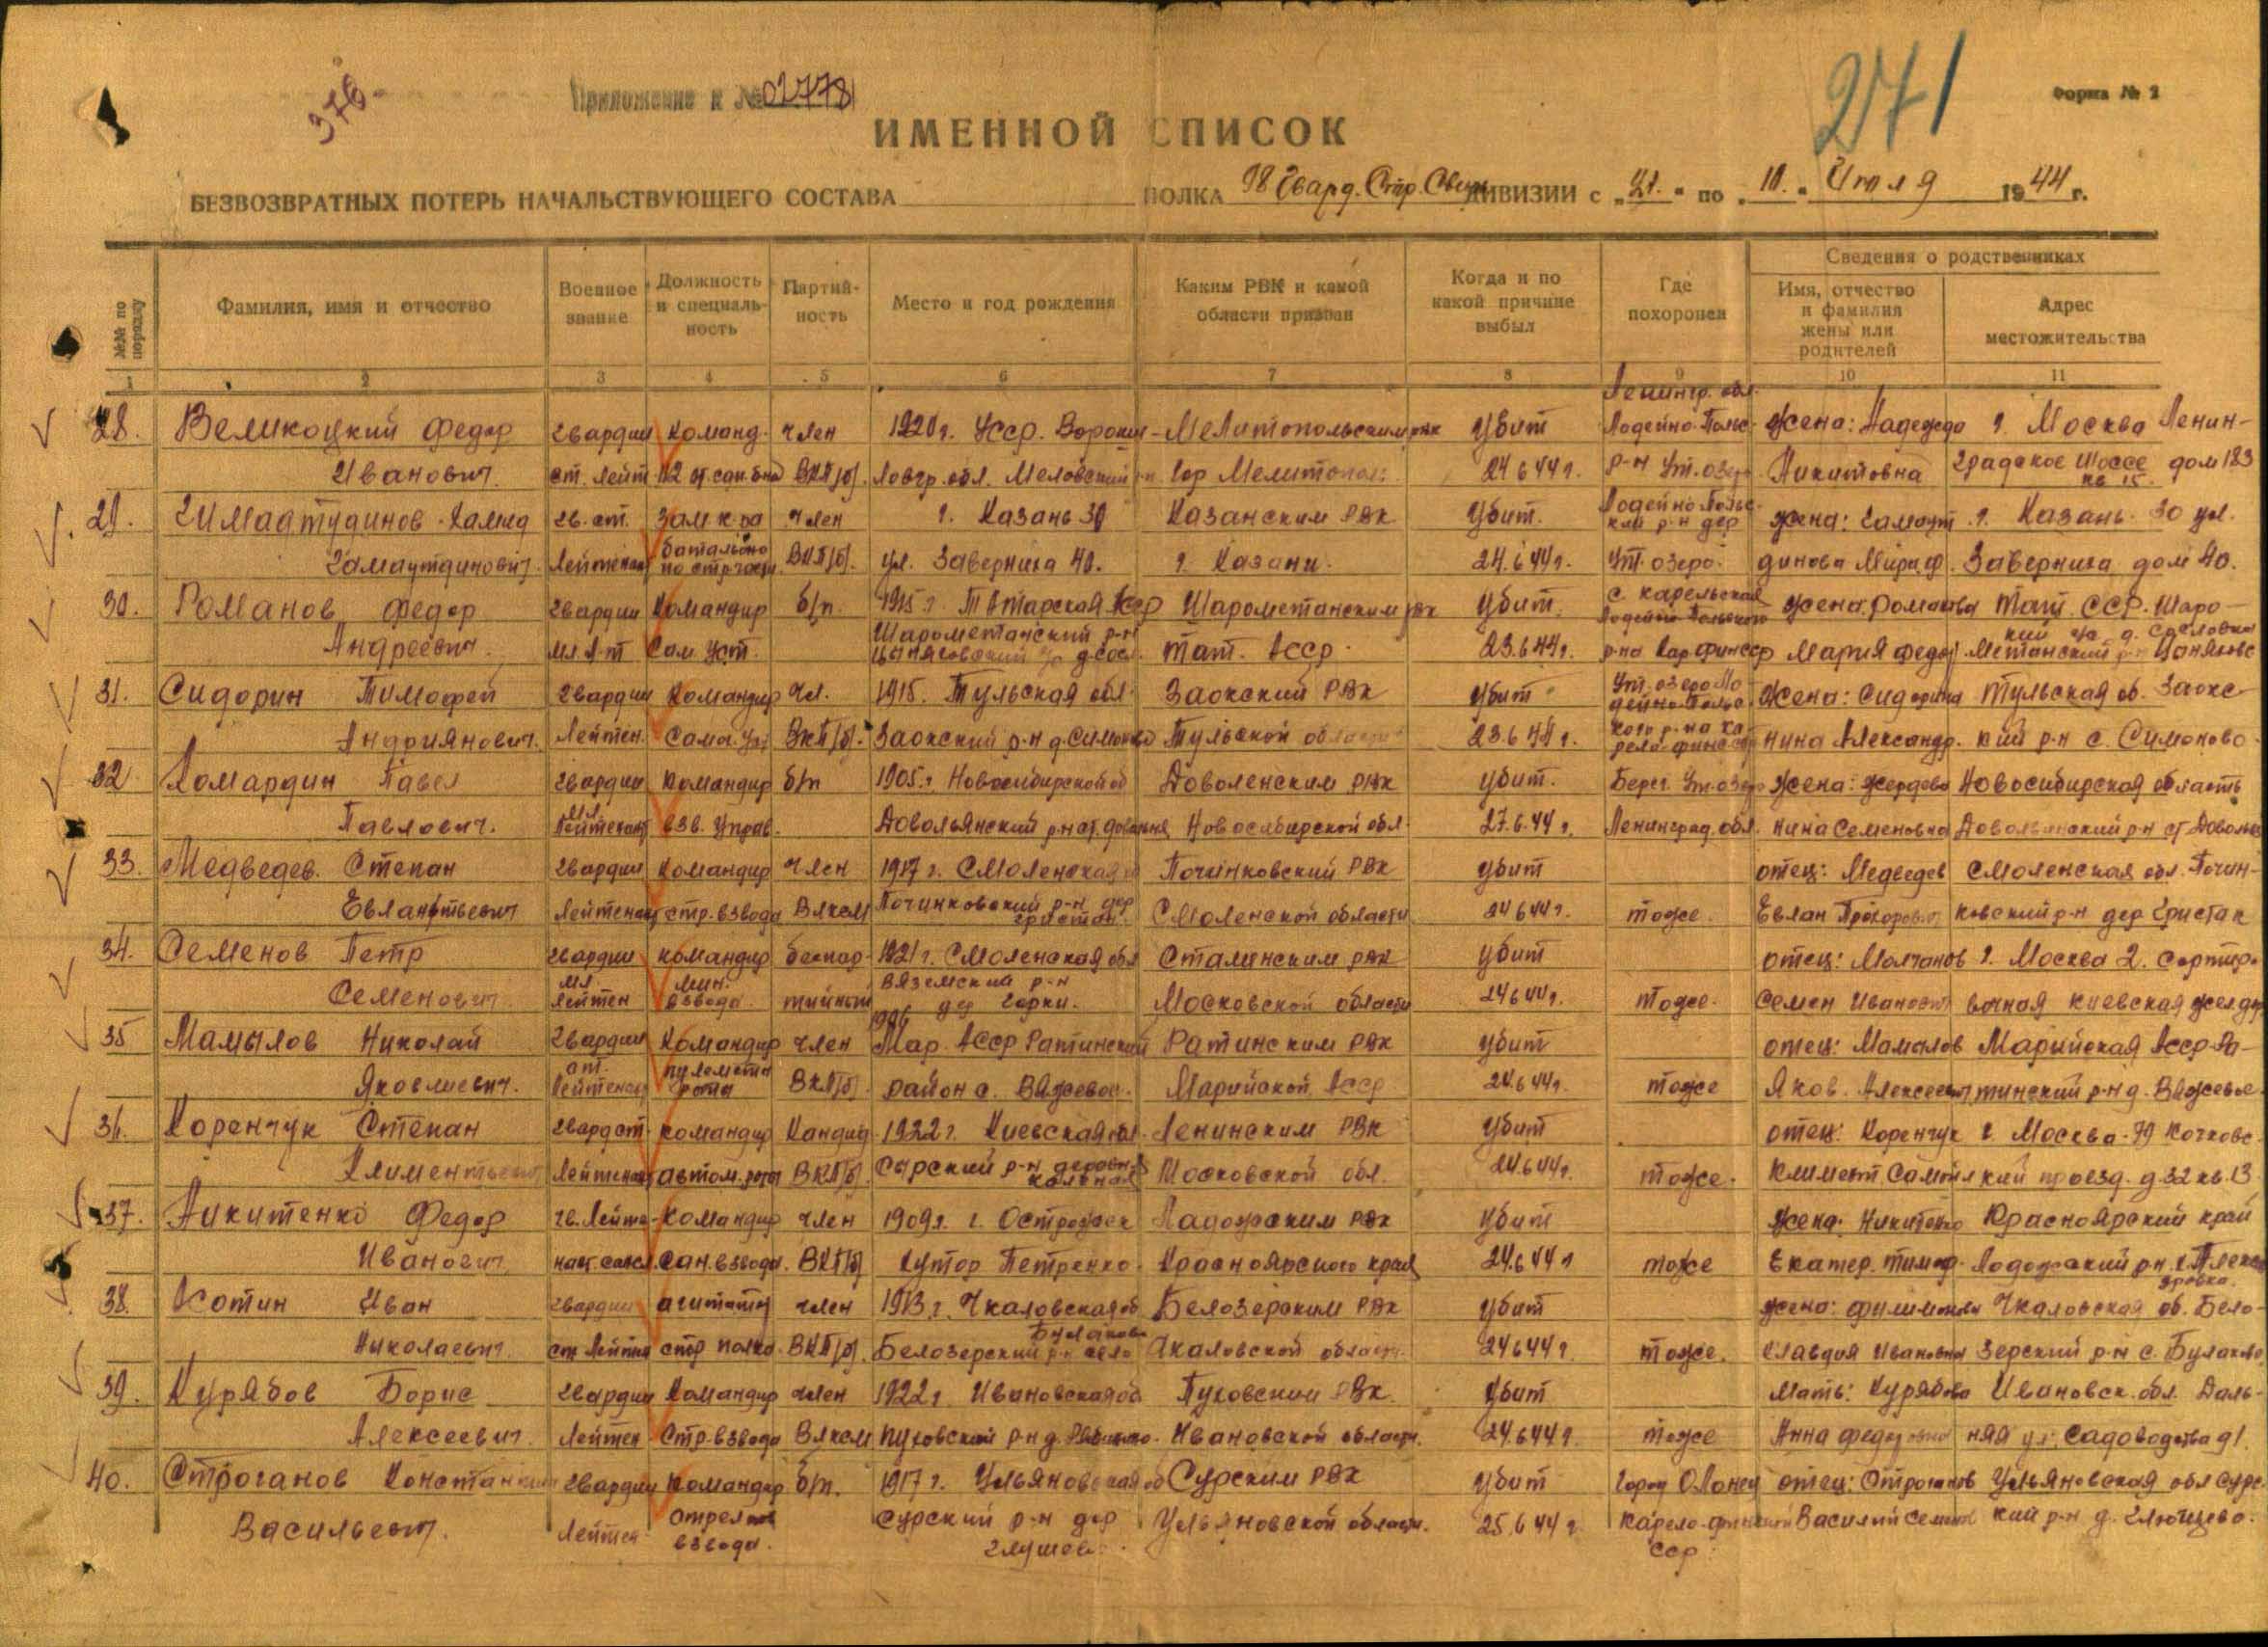 376
Приложение к № 02778
271
Форма № 2
ИМЕННОЙ СПИСОК
БЕЗВОЗВРАТНЫХ ПОТЕРЬ НАЧАЛЬСТВУЮЩЕГО СОСТАВА ПОЛКА 98 Гвард. Стр. Свир. ДИВИЗИИ с „21.“ по „10.“ Июля 1944 г.
№№ по порядку
Фамилия, имя и отчество
Военное звание
Должность и специальность
Партийность
Место и год рождения
Каким РВК и какой области призван
Когда и по какой причине выбыл
Где похоронен
Сведения о родственниках
Имя, отчество и фамилия жены или родителей
Адрес местожительства
1 2 3 4 5 6 7 8 9 10 11
Ленингр. обл.
28. Великоцкий Федор гвардии команд. член 1920г. Усср. Вороши- Мелитопольским рвк Убит Лодейно. Польс- Жена: Надежда г. Москва Ленин-
Иванович. ст. Лейт ВКП/б/. Ловгр. обл. Меловский гор Мелитополь 24 6 44г. р-н Ут. озеро Никитовна градское шоссе дом 183
кв 15.
29. Гимаатудинов Хамид гв. ст. зам к-ра член г. Казань 30 Казанским РВК Убит. Лодейно Польский р-н дер жена: Гамаут г. Казань 30 ул.
Гамаутдинович. Лейтенант батальона по стр. части ВКП/б/. ул. Заверница 40. г. Казани. 24.6 44г. Ут. озеро. динова Заверница дом 40.
30. Романов Федор гвардии Командир б/п. 1915 г. Татарская Асср Шарометанским рвк Убит. с карельская Лодейно Польского жена: Романова Тат. ССР. Шаро-
Андреевич. мл л-т Сам. уст. Шарометанский р-н Тат. Асср. 23.6 44г. р-на Кар финсср Мария Федор. Метанский р-н
31. Сидорин Тимофей гвардии командир чл. 1915. Тульская обл. Заокский РВК Убит Ут. озеро Ло- дейно-Польс- Жена: Сидорина Тульская об. Заокс-
Андриянович. Лейтен. Сам. Уст ВКП/б/. Заокский р-н д. Симоново Тульской области 23.6 44г. кого р-на Ка- рело-финсср Нина Александр. кий р-н с. Симоново
32 Комардин Павел гвардии Командир б/п 1905.г. Новосибирской об Доволенским РВК Убит. Берег. Ут. озеро Жена: Жердева Новосибирская область
Павлович. мл Лейтенант взв. Управ. Довольянский р-н ст. Новосибирской обл. 27.6.44 г. Ленинград. обл. Нина Семеновна Довольянский р-н ст Довольн
33. Медведев. Степан гвардии Командир член 1917 г. Смоленская Починковский РВК Убит отец: Медведев Смоленская обл. Почин-
Евлантьевич Лейтенант стр. взвода Влксм Починковский р-н дер Гристан Смоленской области 24 6 44г. тоже. Евлан Прохоров. ковский р-н дер Гристан
34. Семенов Петр гвардии командир беспар- 1921 г. Смоленская обл Сталинским РВК Убит отец: Молчанов г. Москва 2. Сортиро-
Семенович. мл Лейтен мин. взвода. тийный Вяземский р-н дер Горки. Московской области 24 6 44г. тоже. Семен Иванович вочная Киевская
35 Мамылов Николай гвардии Командир член 1906 Мар. Асср Ратинский Ратинским РВК Убит отец: Мамалов Марийская Асср Ра-
Яковлиевич. ст. Лейтенант пулеметн рота ВКП/б/. район с. Вяжевое. Марийской Асср 24.6 44г. тоже Яков. Алексеевич тинский р-н д. Вяжевое.
36. Коренчук Степан гвард ст. командир Кандид 1922 г. Киевская обл. Ленинским РВК Убит отец: Коренчук г. Москва-79 Кочковс-
Климентьевич Лейтенант автом. рота ВКП/б/. Сырский р-н деревня Московской обл. 24.6 44г. тоже. Климент Самойл кий проезд. д. 32 кв. 13
37. Никитенко Федор гв. Лейте- Командир член 1909 г. г. Острожек Ладожским РВК Убит жена: Никитенко Красноярский край
Иванович сан. взвода. ВКП/б/ Хутор Петренко. Красноярского края 24.6 44 г тоже Екатер. тимоф. Ладожский р-н.
38. Котин Иван гвардии агитатор член 1913 г. Чкаловская об Белозерским РВК Убит жена: Филимонова Чкаловская об. Бело-
Николаевич. ст Лейтен стр полка. ВКП/б/. Белозерский р-н село Булаково Чкаловской области. 24 6 44 г. тоже. Клавдия Ивановна зерский р-н с. Булаково
39. Курябов Борис гвардии Командир член 1922 г Ивановская об Пуховским РВК. Убит Мать: Курябова Ивановск. обл. Даль-
Алексеевич. Лейтен Стр. взвода Влксм Пуховский р-н д. Ивановской области. 24.6 44 г тоже Анна Федоровна няя ул. Садоводства д1.
40. Строганов Константин гвардии Командир б/п. 1917 г. Ульяновская об Сурским РВК Убит город Олонец отец: Строганов Ульяновская обл Сурс-
Васильевич. Лейтен. стрелков взвода. Сурский р-н дер Глушево. Ульяновской области. 25.6 44 г Карело-финской Сср. Василий Семен кий р-н д.